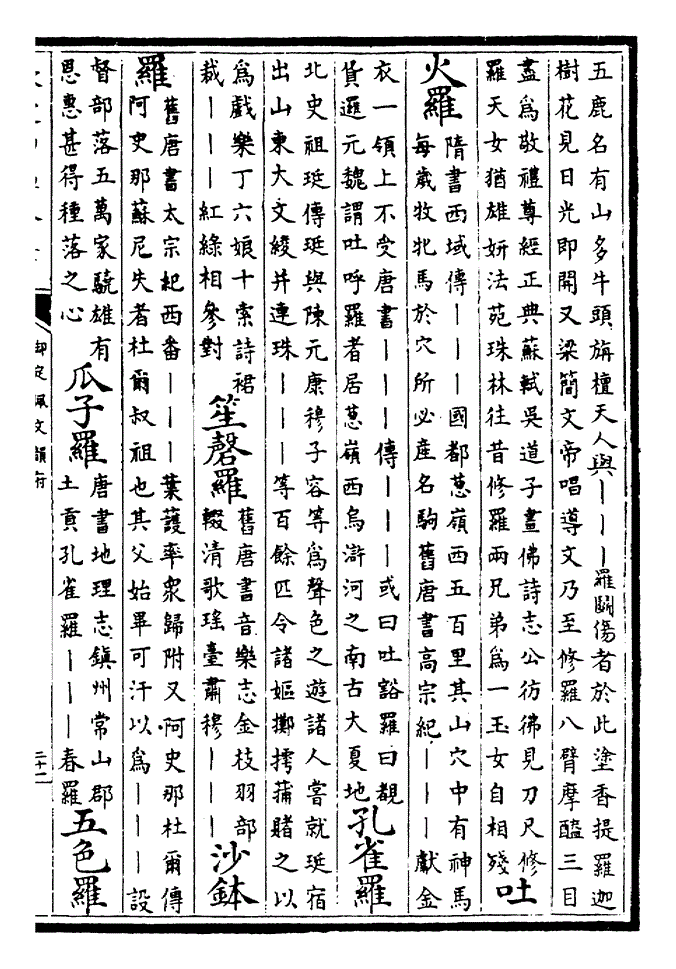 五鹿名有山多牛頭旃檀天人與｜｜｜羅鬬傷者於此塗香提羅迦
樹花見日光即開又梁簡文帝唱導文乃至修羅八臂摩醯三目
盡為敬禮尊經正典蘇軾吳道子畫佛詩志公彷彿見刀尺修
羅天女猶雄妍法苑珠林往昔修羅兩兄弟為一玉女自相殘
吐
火羅
隋書西域傳｜｜｜國都葱嶺西五百里其山穴中有神馬
每歲牧牝馬於穴所必産名駒舊唐書高宗紀｜｜｜獻金
衣一領上不受唐書｜｜｜傳｜｜｜或曰吐豁羅曰覩
貨邏元魏謂吐呼羅者居葱嶺西烏滸河之南古大夏地
孔雀羅
北史祖珽傳珽與陳元康穆子容等為聲色之遊諸人嘗就珽宿
出山東大文綾并連珠｜｜｜等百餘匹令諸嫗擲摴蒱賭之以
為戲樂丁六娘十索詩裙
裁｜｜｜紅綠相參對
笙磬羅
舊唐書音樂志金枝羽部
輟清歌瑤臺肅穆｜｜｜
沙鉢
羅
舊唐書太宗紀西番｜｜｜葉護率衆歸附又阿史那杜爾傳
阿史那蘇尼失者杜爾叔祖也其父始畢可汗以為｜｜｜設
督部落五萬家驍雄有
恩惠甚得種落之心
瓜子羅
唐書地理志鎮州常山郡
土貢孔雀羅｜｜｜春羅
五色羅
御定佩文韻府
二十二